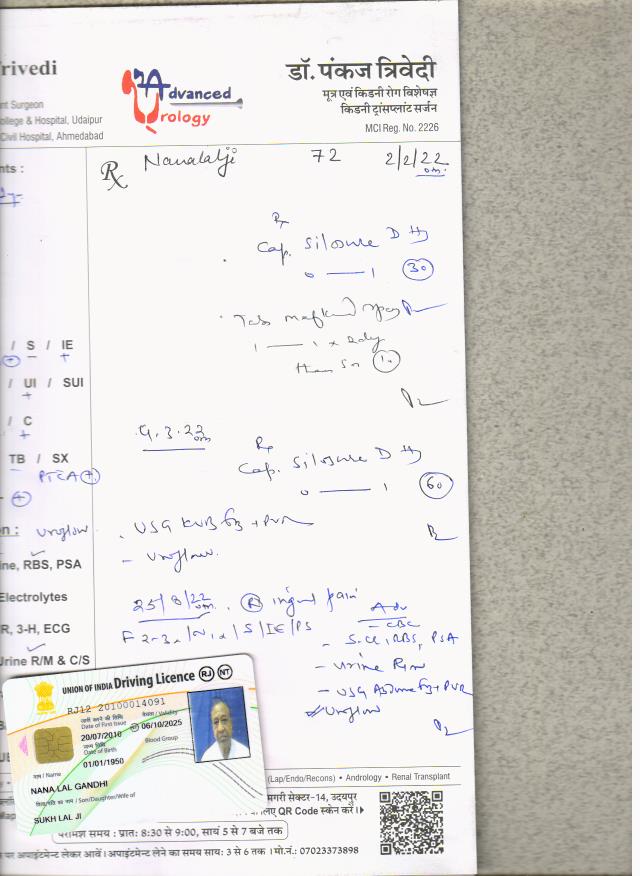 rivedi
nt Surgeon
ollege & Hospital, Udaipur
Civil Hospital, Ahmedabad
Advanced
Urology
डॉ. पंकज त्रिवेदी
मूत्र एवं किडनी रोग विशेषज्ञ
किडनी ट्रांसप्लांट सर्जन
MCI Reg. No. 2226
nts :
Rx Nanalalji 72 2/2/22
Rx
Cap. Silosure D
0 — 1 30
Tab
1 — 1 x
10
/ S / IE
/ UI / SUI
/ C
TB / SX
PTCA +
9.3.22
Rx
Cap. Silosure D
0 — 1 60
on : Uroflow
USG KUB + PVR
- Uroflow.
ine, RBS, PSA
Electrolytes
R, 3-H, ECG
Urine R/M & C/S
25/8/22 R pain
/ S / IE / PS
Adv
- CBC
- S.Cr, RBS, PSA
- Urine R/M
- USG + PVR
Uroflow
UNION OF INDIA Driving Licence RJ NT
RJ12 20100014091
जारी करने की तिथि
Date of First Issue
20/07/2010
वैधता / Validity
06/10/2025
जन्म तिथि
Date of Birth
01/01/1950
Blood Group
नाम / Name
NANA LAL GANDHI
Son/Daughter/Wife of
SUKH LAL JI
(Lap/Endo/Recons) • Andrology • Renal Transplant
मगरी सेक्टर-14, उदयपुर
लिए QR Code स्केन करें
परामर्श समय : प्रात: 8:30 से 9:00, सायं 5 से 7 बजे तक
पर अपाइंटमेन्ट लेकर आवें। अपाइंटमेन्ट लेने का समय सायः 3 से 6 तक । मो.नं.: 07023373898